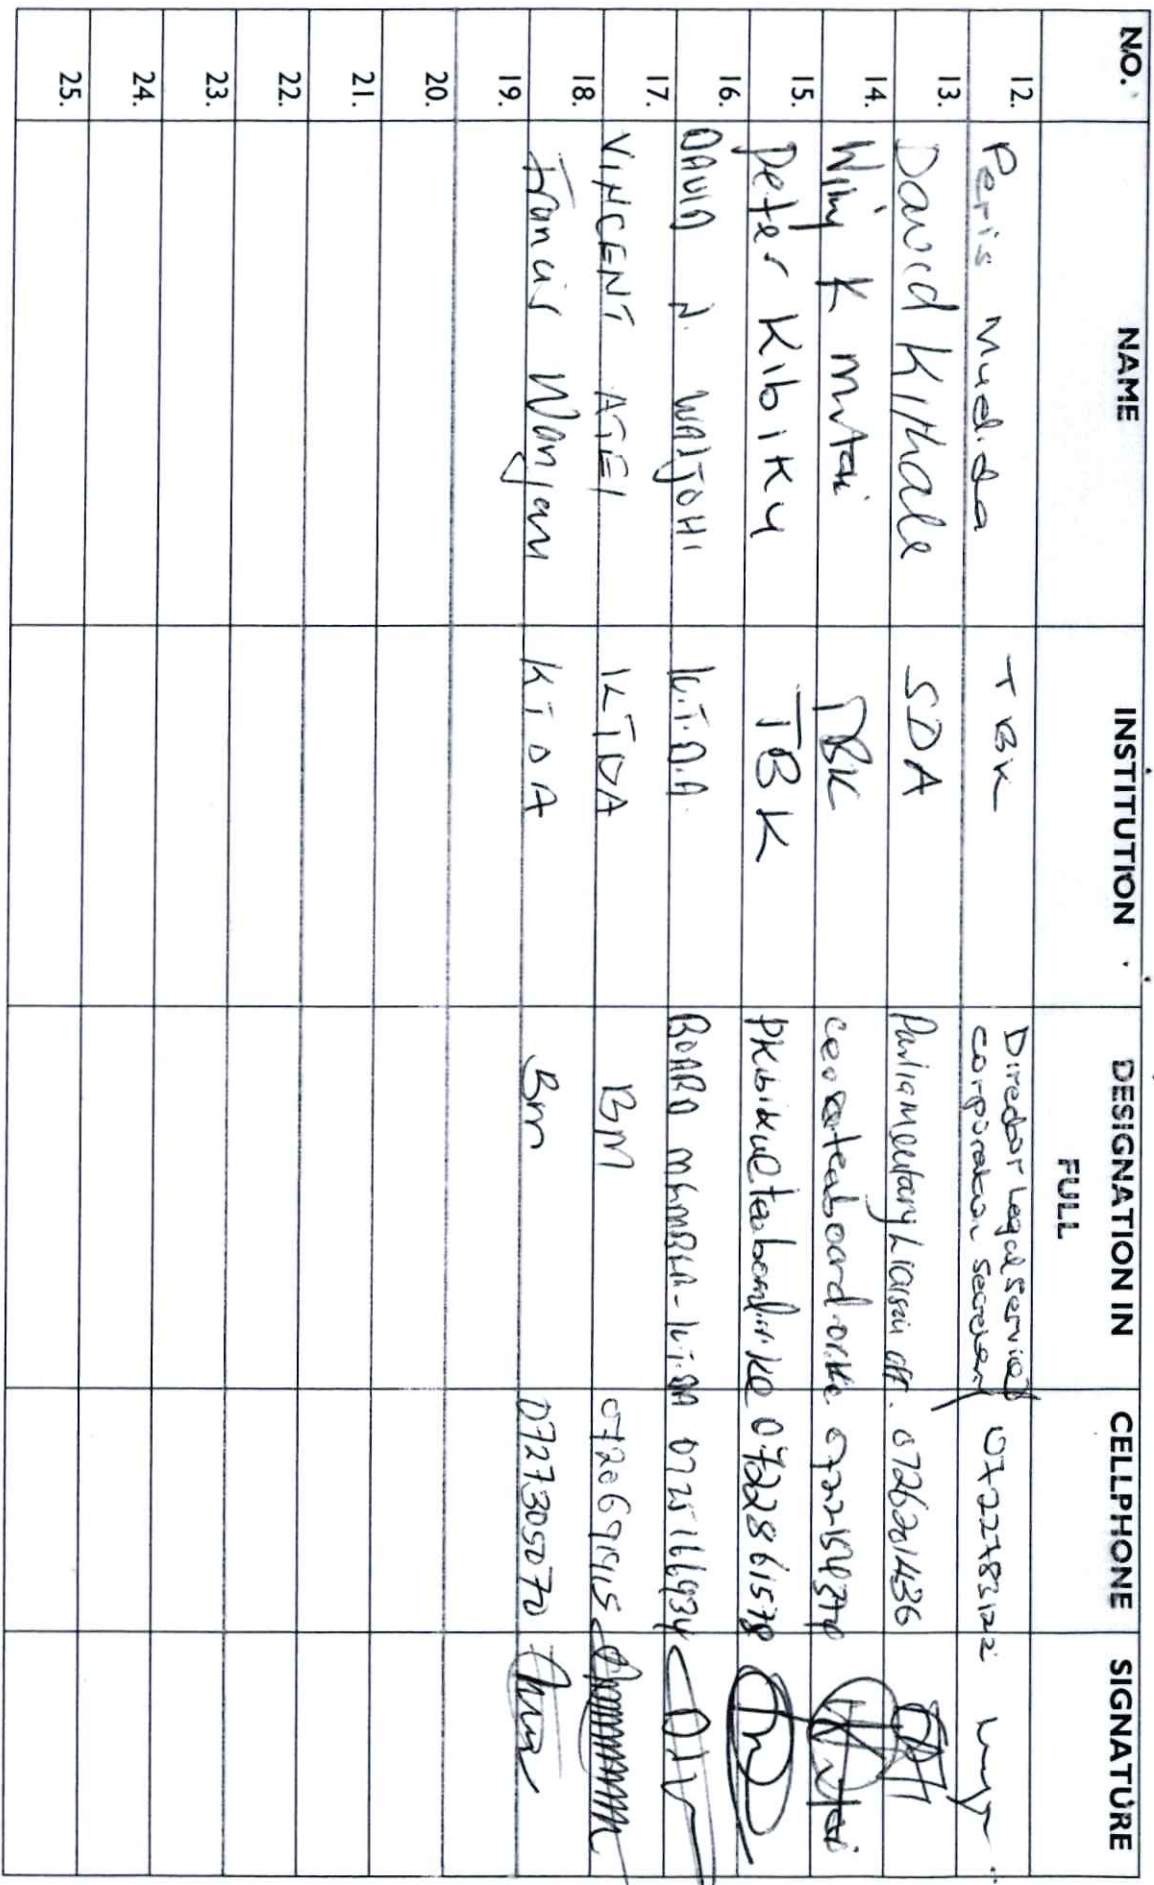 NO. NAME INSTITUTION DESIGNATION IN FULL CELLPHONE SIGNATURE
12. Peris Mudida TBK Director Legal Services corporation Secretary
13. David Kithale SDA Parliamentary Liaison off. 0726201436
14. Willy K Mutai TBK
15. Peter Kibiku TBK 0722861578
16. DAVID N. WAIJOHI K.T.D.A. BOARD MEMBER - K.T.DA 0725166934
17. VINCENT KTDA BM
18. Francis Wanjau KTDA Bm 0727305070
19.
20.
21.
22.
23.
24.
25.